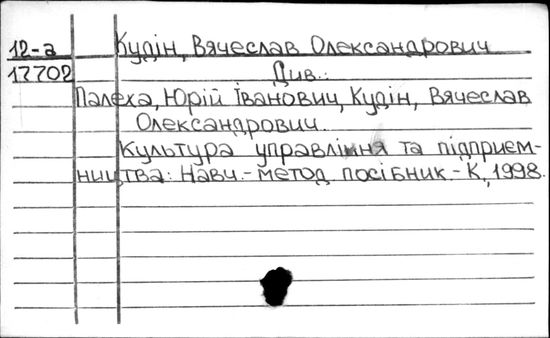 12-а Кудін, Вячеслав Олександрович
17702 Див.:
Палеха, Юрій Іванович, Кудін, Вячеслав
Олександрович.
Культура управління та підприєм-
ництва: Навч.-метод. посібник.- К., 1998.